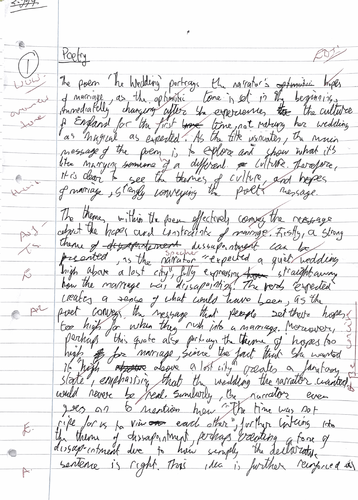 1
Poetry
The poem 'The Wedding' portrays the narrator's optimistic hopes
of marriage, as the optimistic tone is set in the beginning,
immediately changing after she experiences the culture
of England for the first time, not making her wedding
as magical as expected. As the title indicates, the main
message of the poem is to explore and show what it's
like marrying someone of a different culture. Therefore,
it is clear to see the themes of culture, and hopes
of marriage, strongly conveying the poet's message.
The themes within the poem effectively convey the message
about the hopes and constraints of marriage. Firstly, a strong
theme of disappointment can be
presented, as the narrator "expected a quiet wedding
high above a lost city", fully expressing straight away
how the marriage was disappointing. The verb expected
creates a sense of what could have been, as the
poet conveys the message that people set their hopes
too high for when they rush into a marriage. Moreover,
perhaps this quote also portrays the theme of hopes too
high for marriage, since the fact that she wanted
it "high above a lost city" creates a fantasy
state, emphasising that the wedding the narrator wanted
would never be real. Similarly, the narrator even
goes on to mention how "The time was not
ripe for us to view each other", further linking into
the theme of disappointment, perhaps creating a tone of
disappointment due to how simply the declarative
sentence is right. This idea is further reinforced as